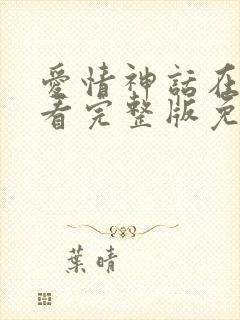 愛情神話在
看完整版免
葉晴